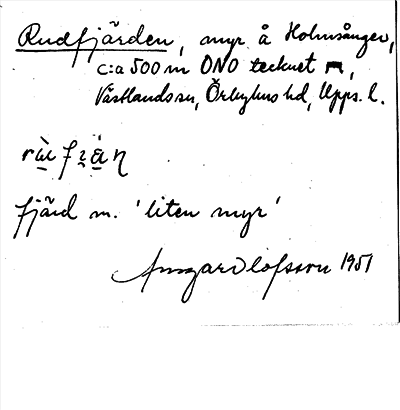 Rudfjärden, myr å Holmsånger,
c:a 500 m ONO tecknet ⊓,
Västlands sn, Örbyhus hd, Upps. l.
fjärd m. 'liten myr'
Olofsson 1951